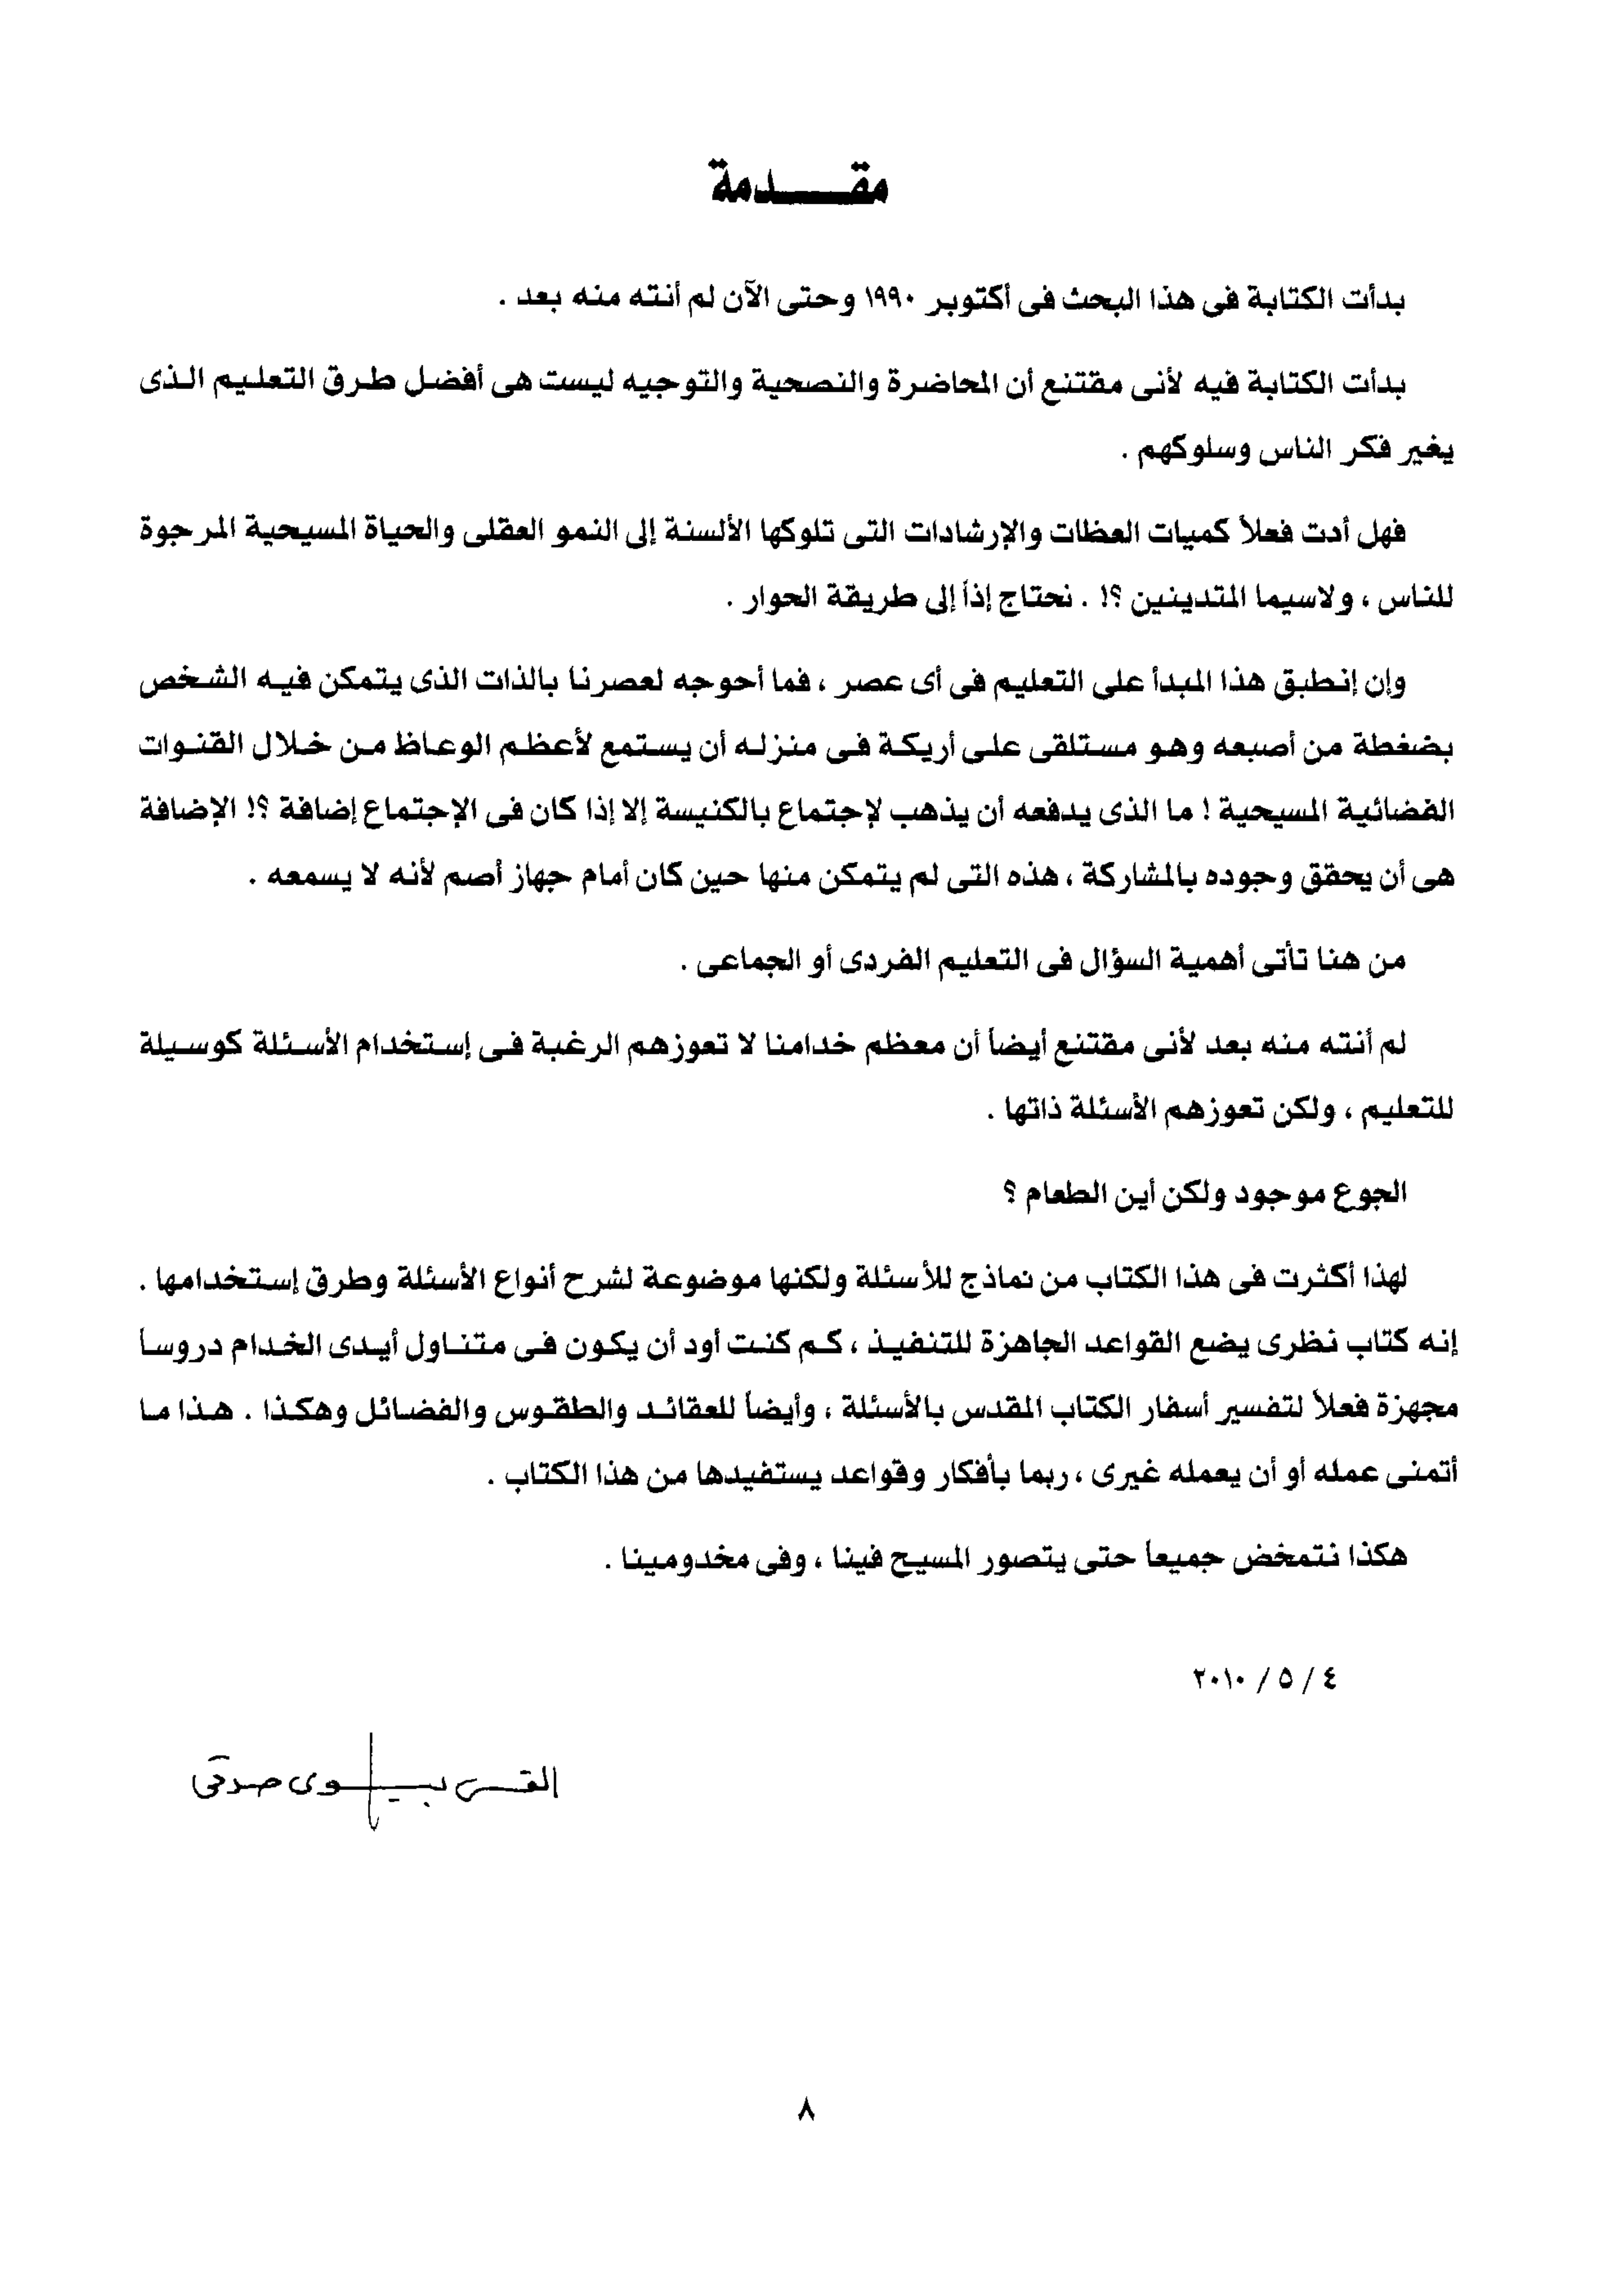 مقـــدمة
بدأت الكتابة فى هذا البحث فى أكتوبر ١٩٩٠ وحتى الآن لم أنته منه بعد .
بدأت الكتابة فيه لأنى مقتنع أن المحاضرة والنصحية والتوجيه ليست هى أفضل طرق التعليم الذى
يغير فكر الناس وسلوكهم .
فهل أدت فعلاً كميات العظات والإرشادات التى تلوكها الألسنة إلى النمو العقلى والحياة المسيحية المرجوة
للناس ، ولاسيما المتدينين ؟! . نحتاج إذاً إلى طريقة الحوار .
وإن إنطبق هذا المبدأ على التعليم فى أى عصر ، فما أحوجه لعصرنا بالذات الذى يتمكن فيه الشخص
بضغطة من أصبعه وهو مستلقى على أريكة فى منزله أن يستمع لأعظم الوعاظ من خلال القنوات
الفضائية المسيحية ! ما الذى يدفعه أن يذهب لإجتماع بالكنيسة إلا إذا كان فى الإجتماع إضافة ؟! الإضافة
هى أن يحقق وجوده بالمشاركة ، هذه التى لم يتمكن منها حين كان أمام جهاز أصم لأنه لا يسمعه .
من هنا تأتى أهمية السؤال فى التعليم الفردى أو الجماعى .
لم أنته منه بعد لأنى مقتنع أيضاً أن معظم خدامنا لا تعوزهم الرغبة فى إستخدام الأسئلة كوسيلة
للتعليم ، ولكن تعوزهم الأسئلة ذاتها .
الجوع موجود ولكن أين الطعام ؟
لهذا أكثرت فى هذا الكتاب من نماذج للأسئلة ولكنها موضوعة لشرح أنواع الأسئلة وطرق إستخدامها .
إنه كتاب نظرى يضع القواعد الجاهزة للتنفيذ ، كم كنت أود أن يكون فى متناول أيدى الخدام دروساً
مجهزة فعلاً لتفسير أسفار الكتاب المقدس بالأسئلة ، وأيضاً للعقائد والطقوس والفضائل وهكذا . هذا ما
أتمنى عمله أو أن يعمله غيرى ، ربما بأفكار وقواعد يستفيدها من هذا الكتاب .
هكذا نتمخض جميعاً حتى يتصور المسيح فينا ، وفى مخدومينا .
٤ / ٥ / ٢٠١٠
القس بيشوى صدقى
٨